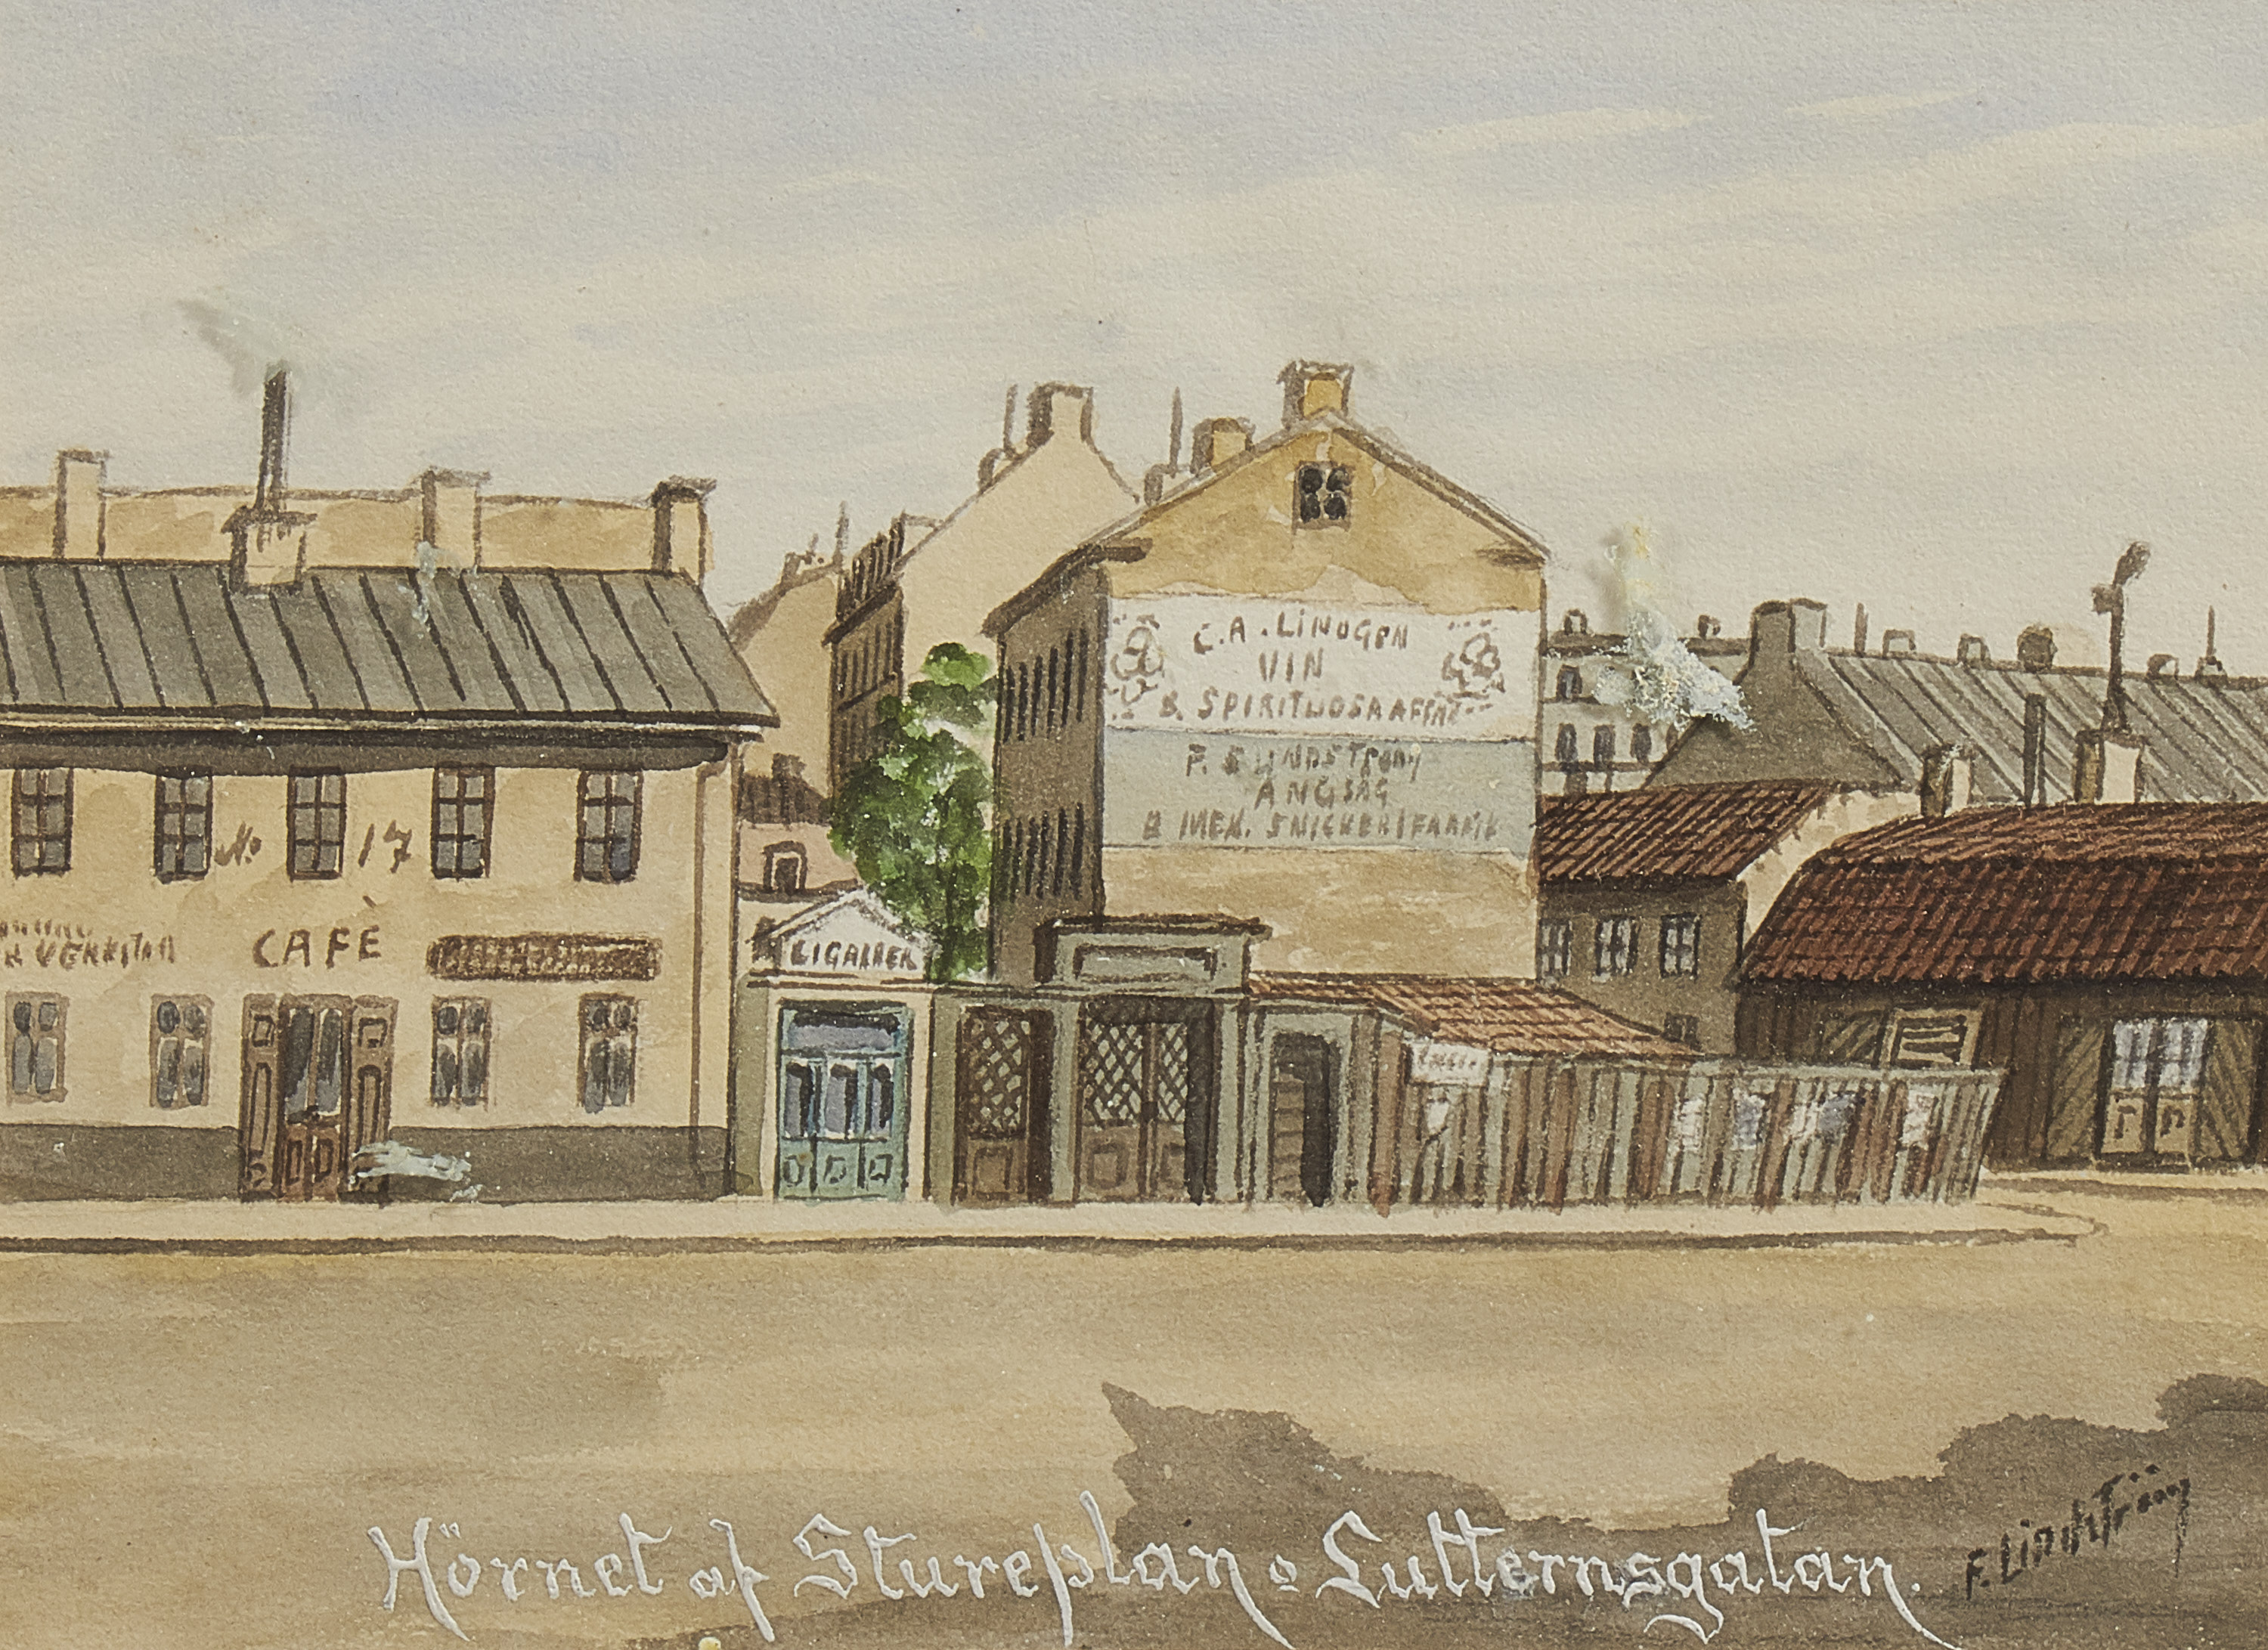 C.A. LINDGREN
VIN
& SPIRITUOSAAFFÄR
F. SUNDSTRÖM
ÅNGSÅG
& MEK. SNICKERIFABRIK
No 17
& VERKSTAD
CAFÈ
CIGARRER
Hörnet af Stureplan o Lutternsgatan.
F. Lindström